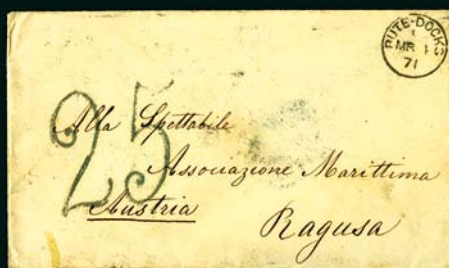 BUTE-DOCKS
MR 1
71
25
Alla Spettabile
Associazione Marittima
Austria
Ragusa